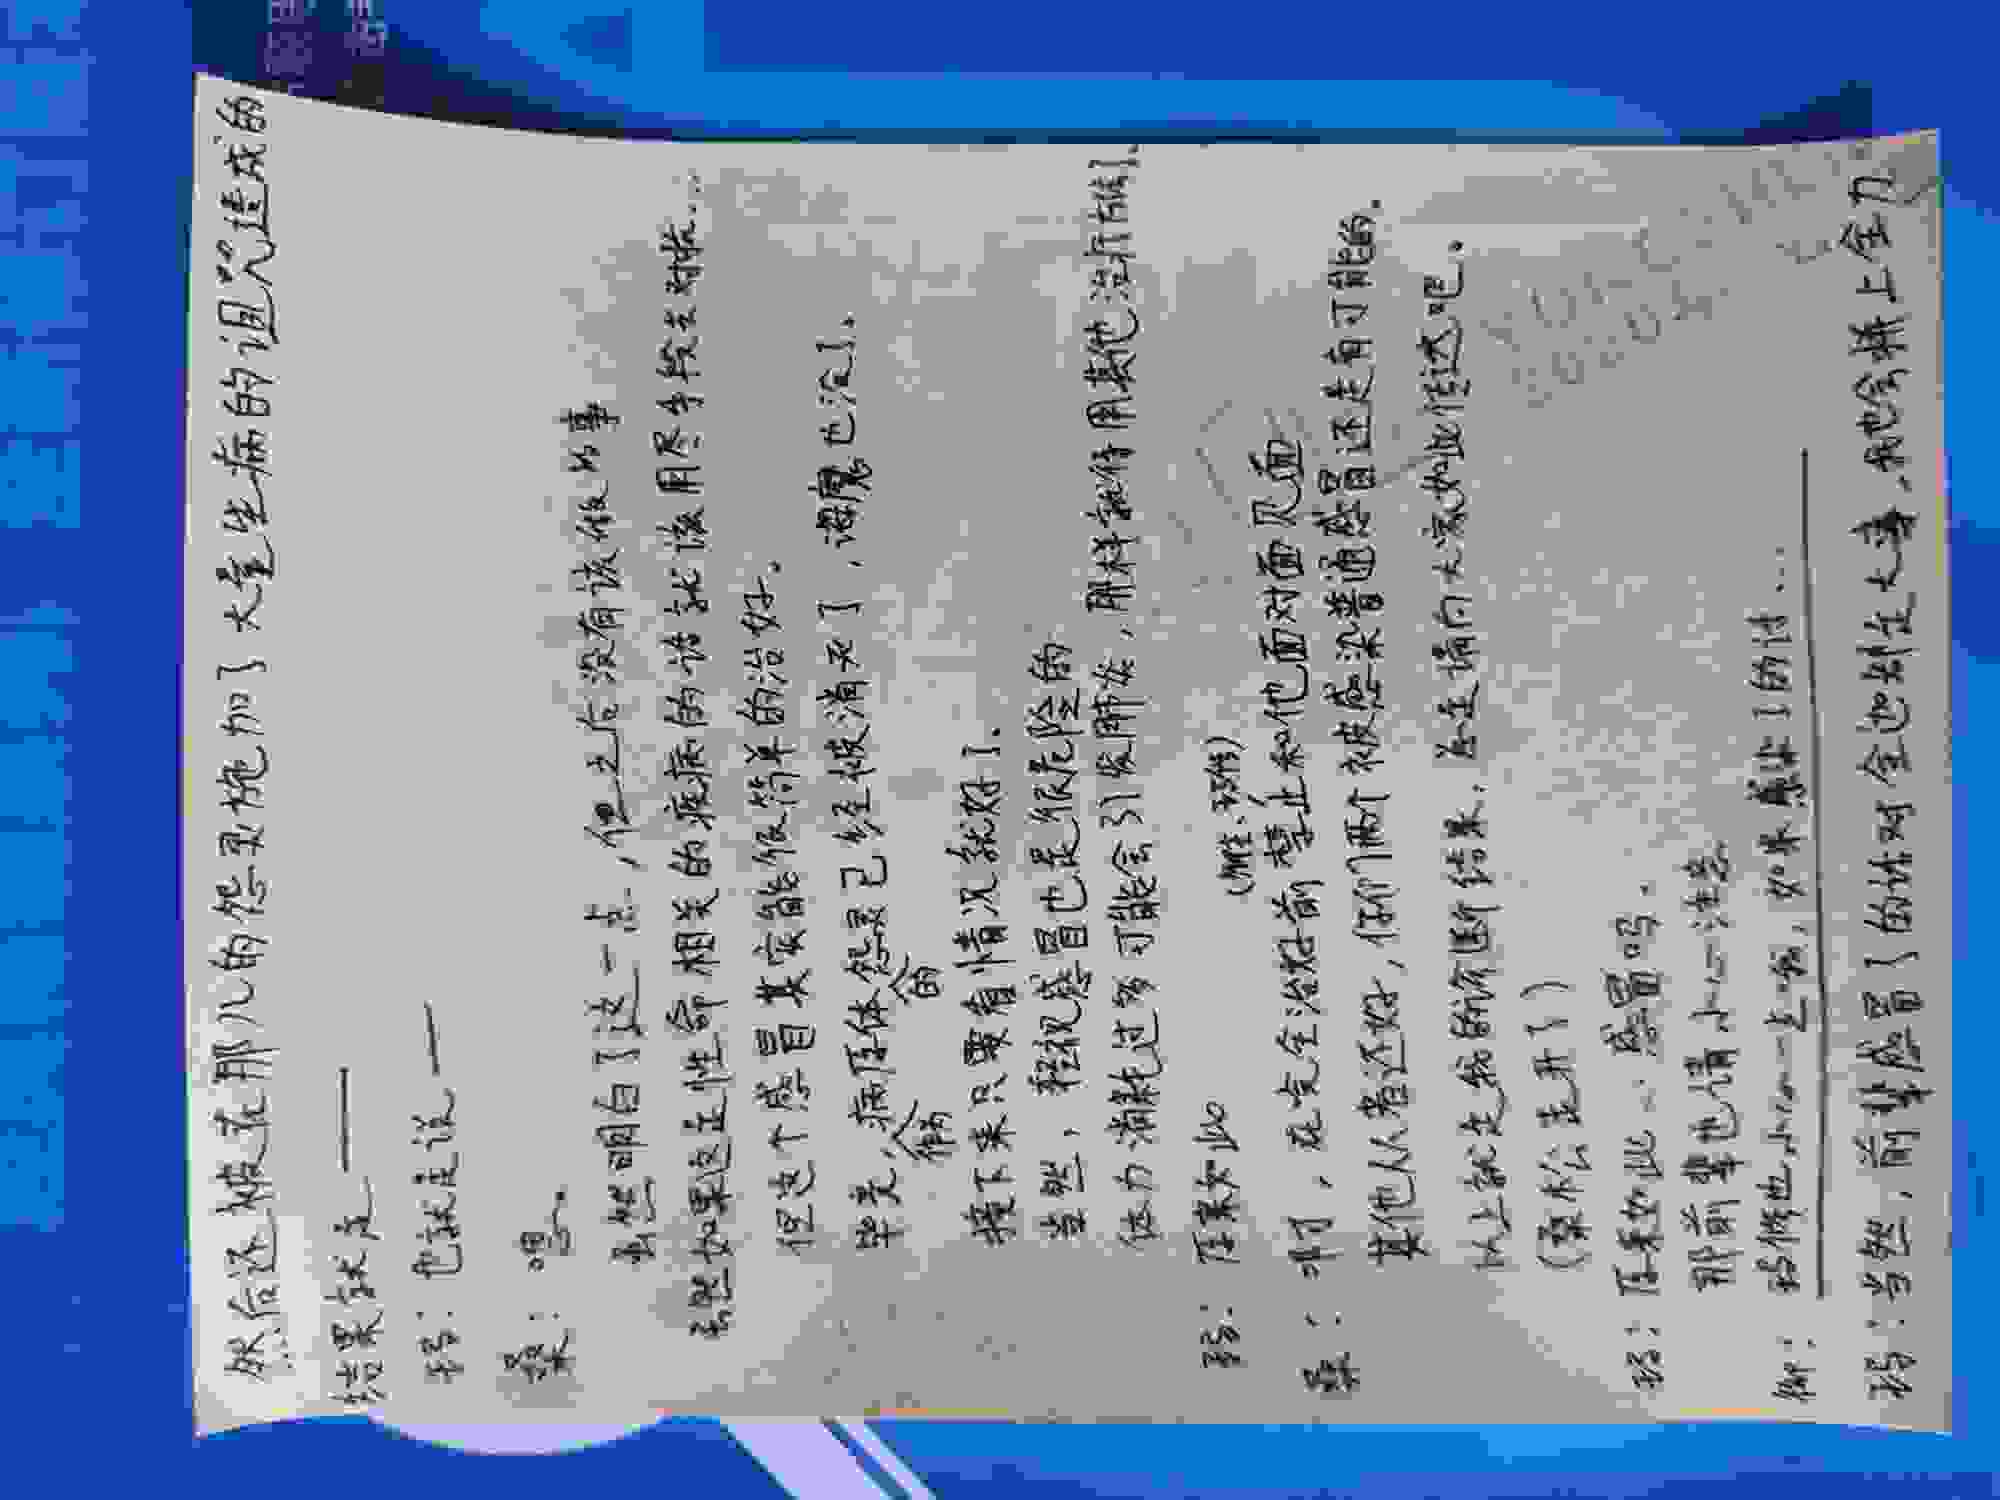 然后还被在那儿的怨灵施加了大量生病的诅咒造成的
结果就是——
玛：也就是说——
桑：嗯。
虽然明白了这一点，但之后没有该做的事
虽然如果这是性命相关的疾病的话就该用尽手段去对抗...
但这个感冒其实能很简单的治好。
毕竟，病原体的怨灵已经被消灭了，诸魔也没了。
接下来只要看情况就好了。
当然，轻视感冒也是很危险的
体力消耗过多可能会引发肺炎，那样就得用其他治疗方法了。
玛：原来如此
桑：那，在完全治好前禁止和他面对面见面
其他人看还好，你们两个被感染普通感冒还是有可能的。
以上就是我的诊断结果，总之请向大家如此传达吧。
(桑松公走开了)
玛：原来如此、感冒吗。
那前辈也请小心注意
御：玛修也小心一点哦，如果感染了的话...
玛：当然，前辈感冒了的话对全迦勒是大事，我也会拼上全力